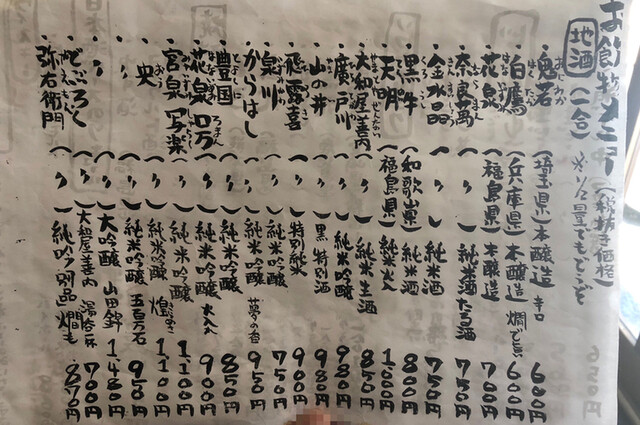 お飲物メニュー（税抜き価格）
地酒（一合）※1/2量でもどうぞ
・鬼若（埼玉県）本醸造 辛口 600円
おにわか
・白鷹（兵庫県）本醸造 燗でも 600円
・花泉（福島県）本醸造 700円
・奈良萬（〃）純米酒たる酒 750円
・金水晶（〃）純米酒 750円
・黒牛（和歌山県）純米酒 800円
・天明（福島県）純米火入 1,000円
・大和屋善内（〃）純米生酒 850円
・廣戸川（〃）純米吟醸 980円
・山の井（〃）黒 特別酒 980円
・飛露喜（〃）特別純米 900円
・泉川（〃）純米吟醸 750円
・からはし（〃）純米吟醸 夢の香 950円
・豊国（〃）純米吟醸 850円
・花泉 ロ万（〃）純米吟醸 火入 900円
・宮泉 写楽（〃）純米吟醸 1,100円
・央（〃）純米吟醸 煌 1,100円
・〃（〃）純米吟醸 五百万石 950円
・〃（〃）大吟醸 山田錦 1,480円
・どぶろく（〃）大和屋善内 700円
・弥右衛門（〃）純吟別品 燗も 870円